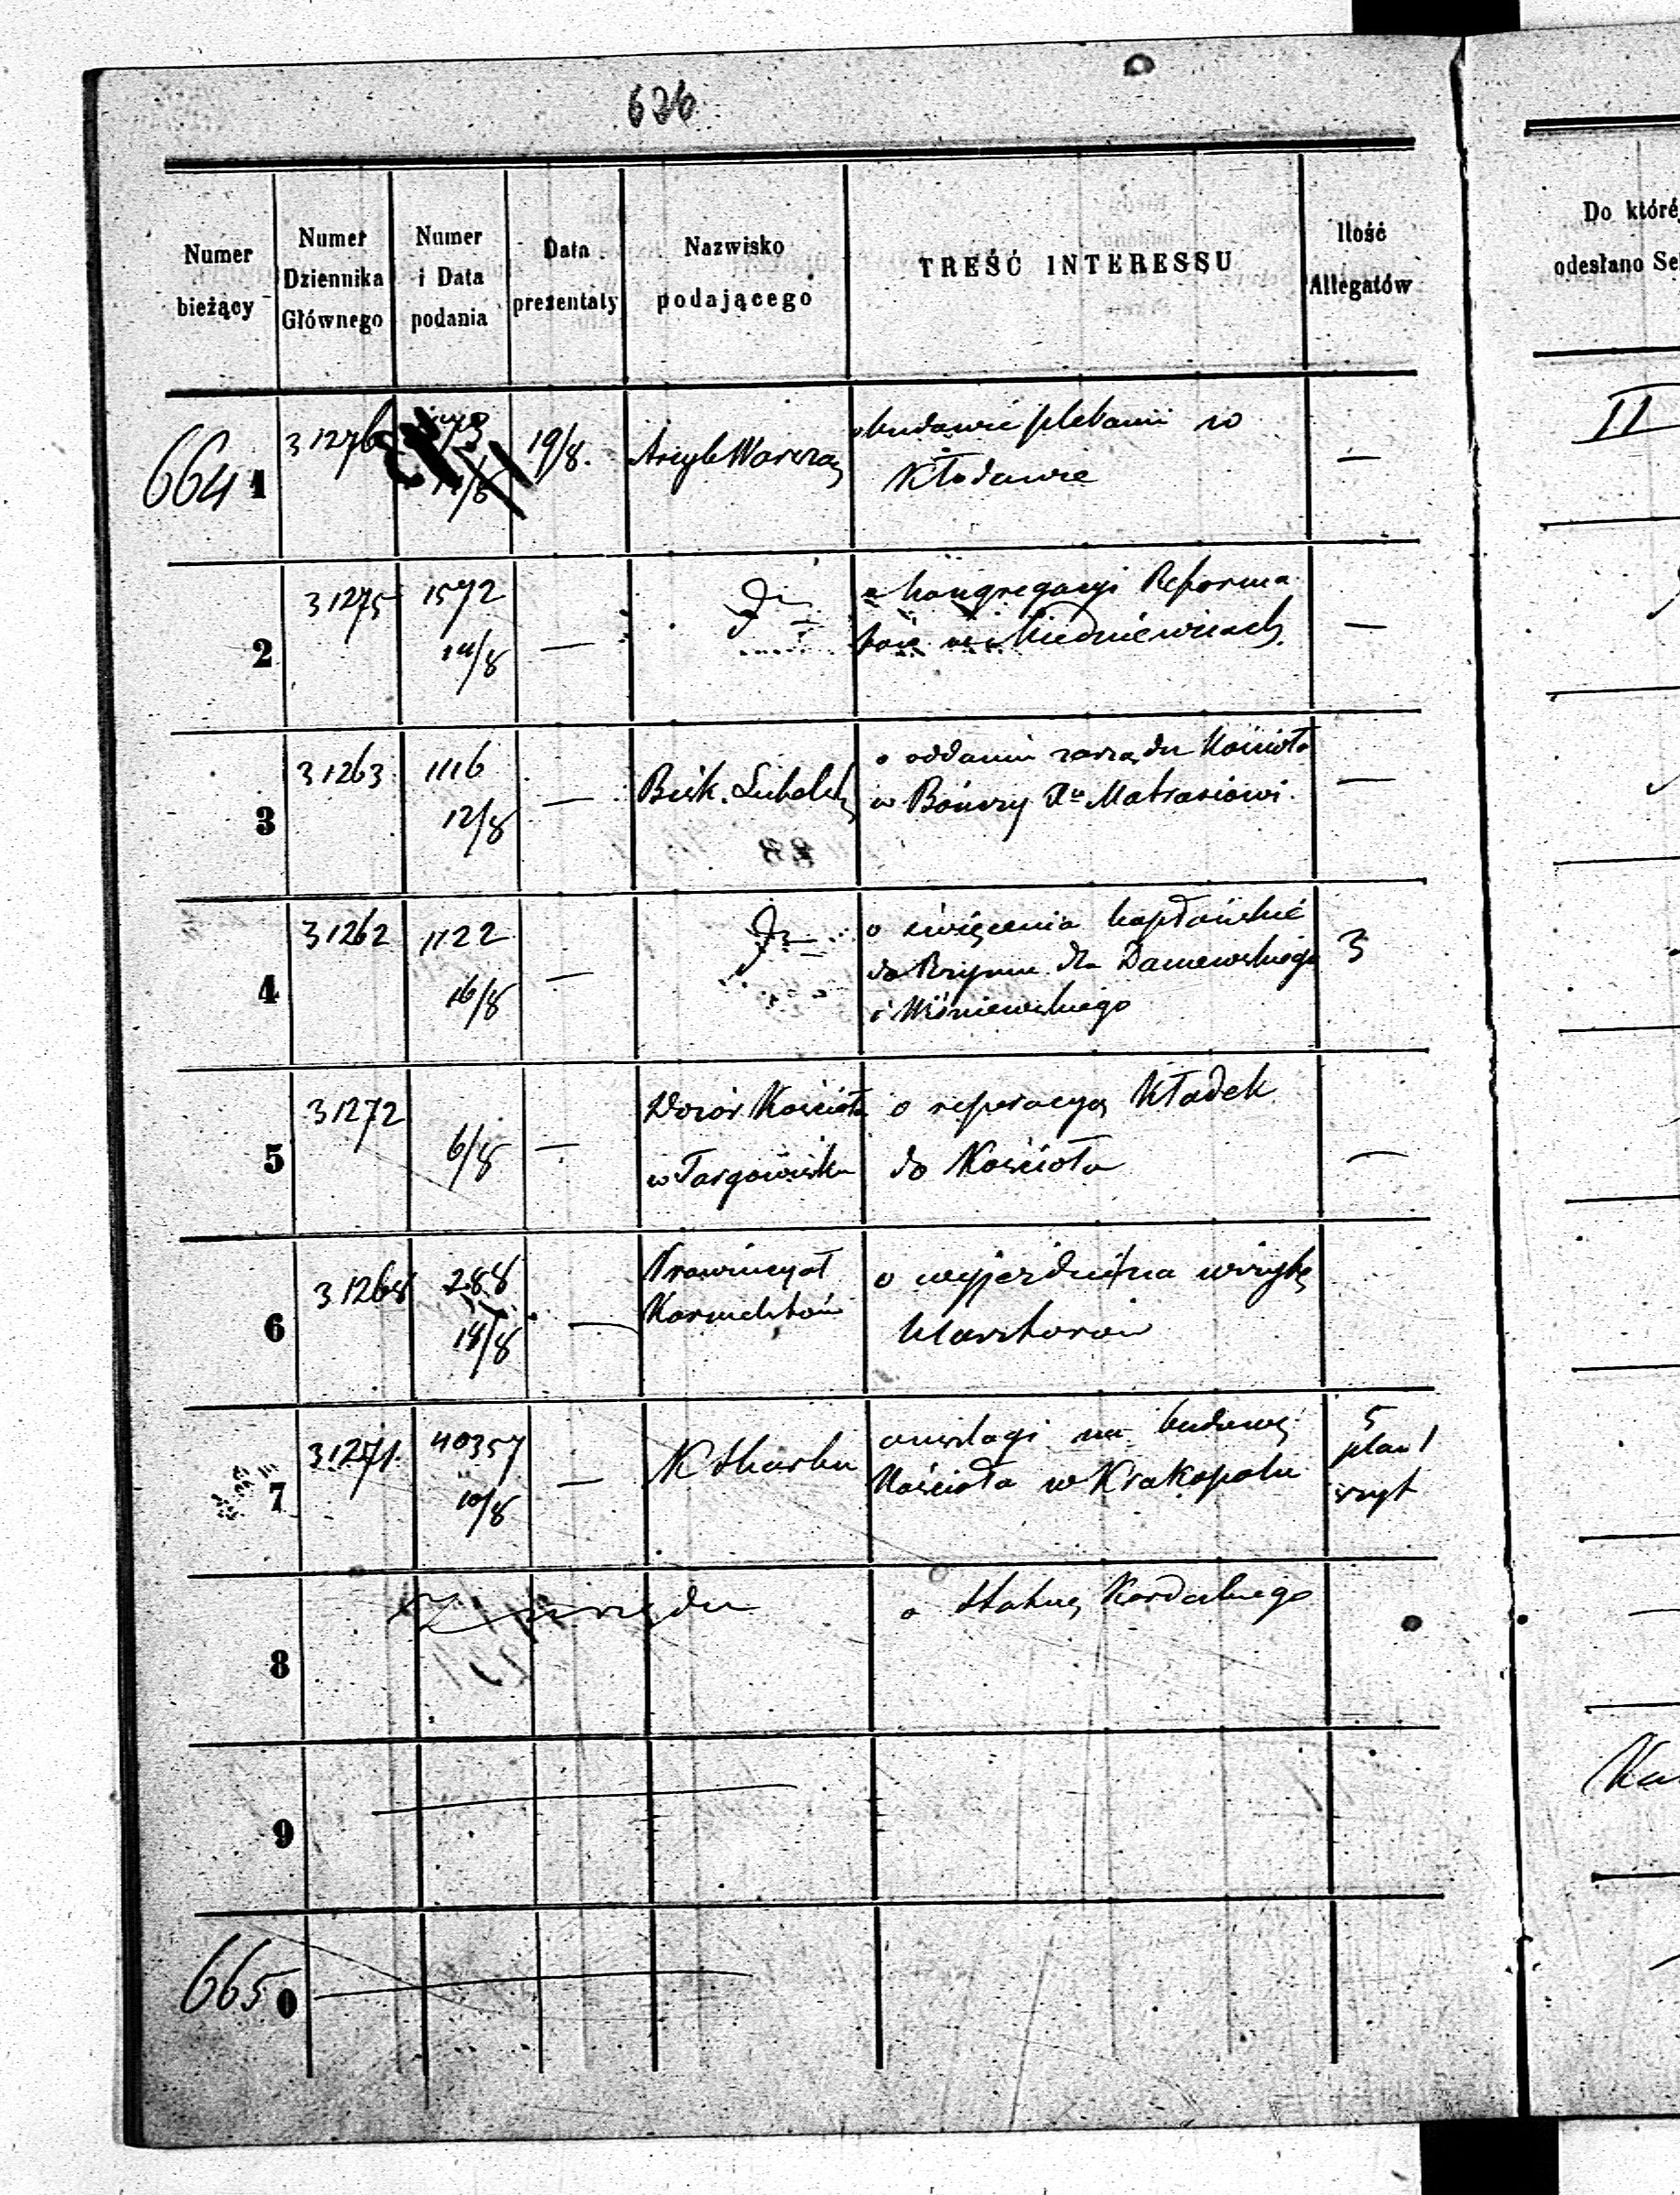 626
Numer bieżący
Numer Dziennika Głównego
Numer i Data podania
Data prezentaty
Nazwisko podającego
TREŚĆ INTERESSU
Ilość Allegatów
Do któré
odesłano Se
664 1
3127
19/8.
Arcyb Warszaw
o budowie plebanii w
Kłodawie
—
II
2
31275
1572
14/8
—
o kongregacyi Reforma
w Miedniewicach
—
3
31263
1116
12/8
—
Bisk. Lubelski
o oddaniu zarządu Kościoła
w Bończy Xu Matrasiowi.
—
4
31262
1122
16/8
—
o święcenia kapłańskie
do Rzymu dla Daniewskiego
i Wiśniewskiego
3
5
31272
6/8
—
Dozór Kościoła
w Targowisku
o reperacyą Kładek
do Kościoła
—
6
31268
288
14/8
—
Prowincyał
Karmelitów
o wyjeździe na wizytę
klasztorów
7
31271.
40357
10/8
—
K Skarbu
o uwagi na budowę
Kościoła w Krakopolu
5
plan 1
szyt
8
Z urzędu
o Kordeckiego
9
665 0
Ka